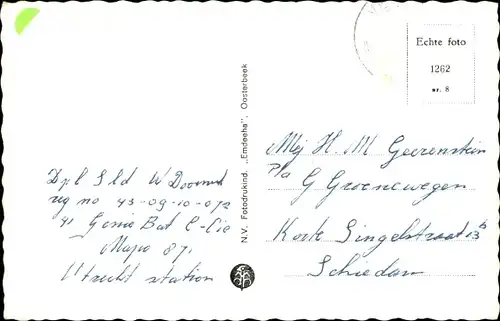 Echte foto
1262
nr. 8
Dpl Sld W Doornd
reg no 43-09-10-072
41 Genie Bat C-Cie
Mapo 87.
Utrecht station
N.V. Fotodrukind. „Emdeeha”, Oosterbeek
Mej H. M Geerenstein
P/a
G Groenewegen
Korte Singelstraat 13b
Schiedam